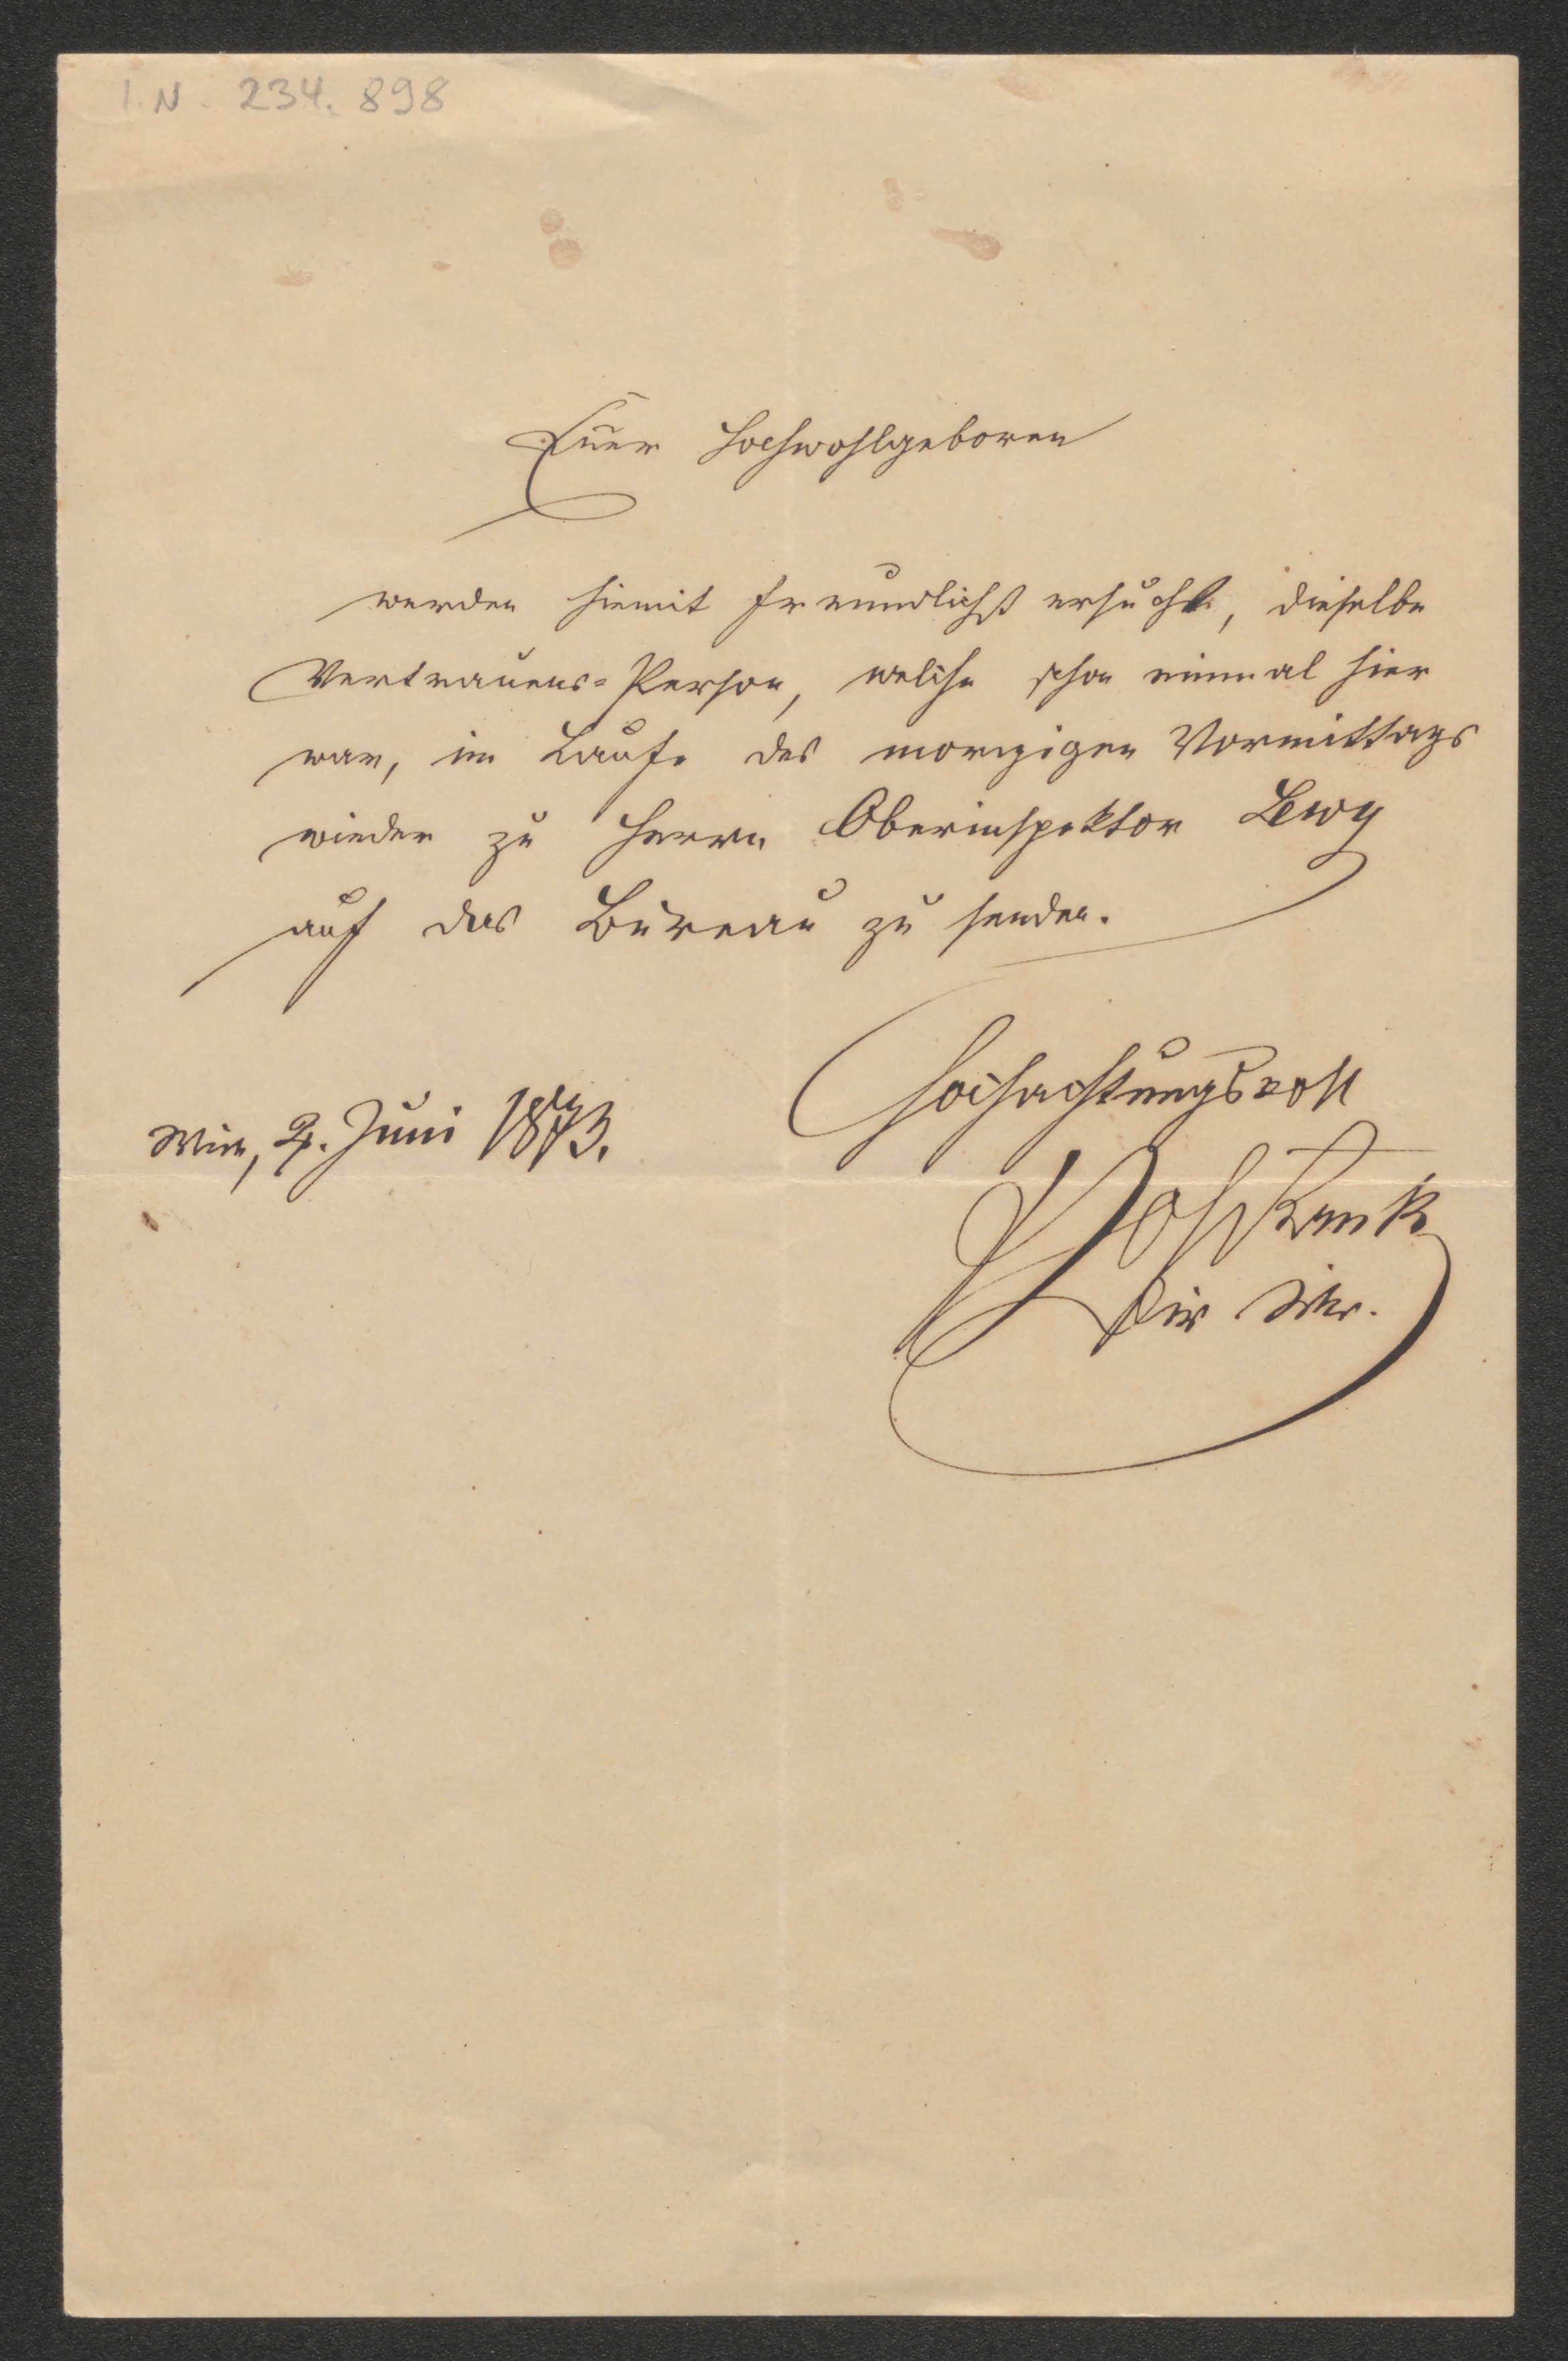 I. N. 234.898
Euer Hochwohlgeboren
werden hiemit freundlichst ersucht, dieselbe
Vertrauens=Person, welche schon einmal hier
war, im Laufe des morgigen Vormittags
wieder zu Herrn Oberinspektor Lewy
auf das Bureau zu senden.
Hochachtungsvoll
Wien, 2. Juni 1873.